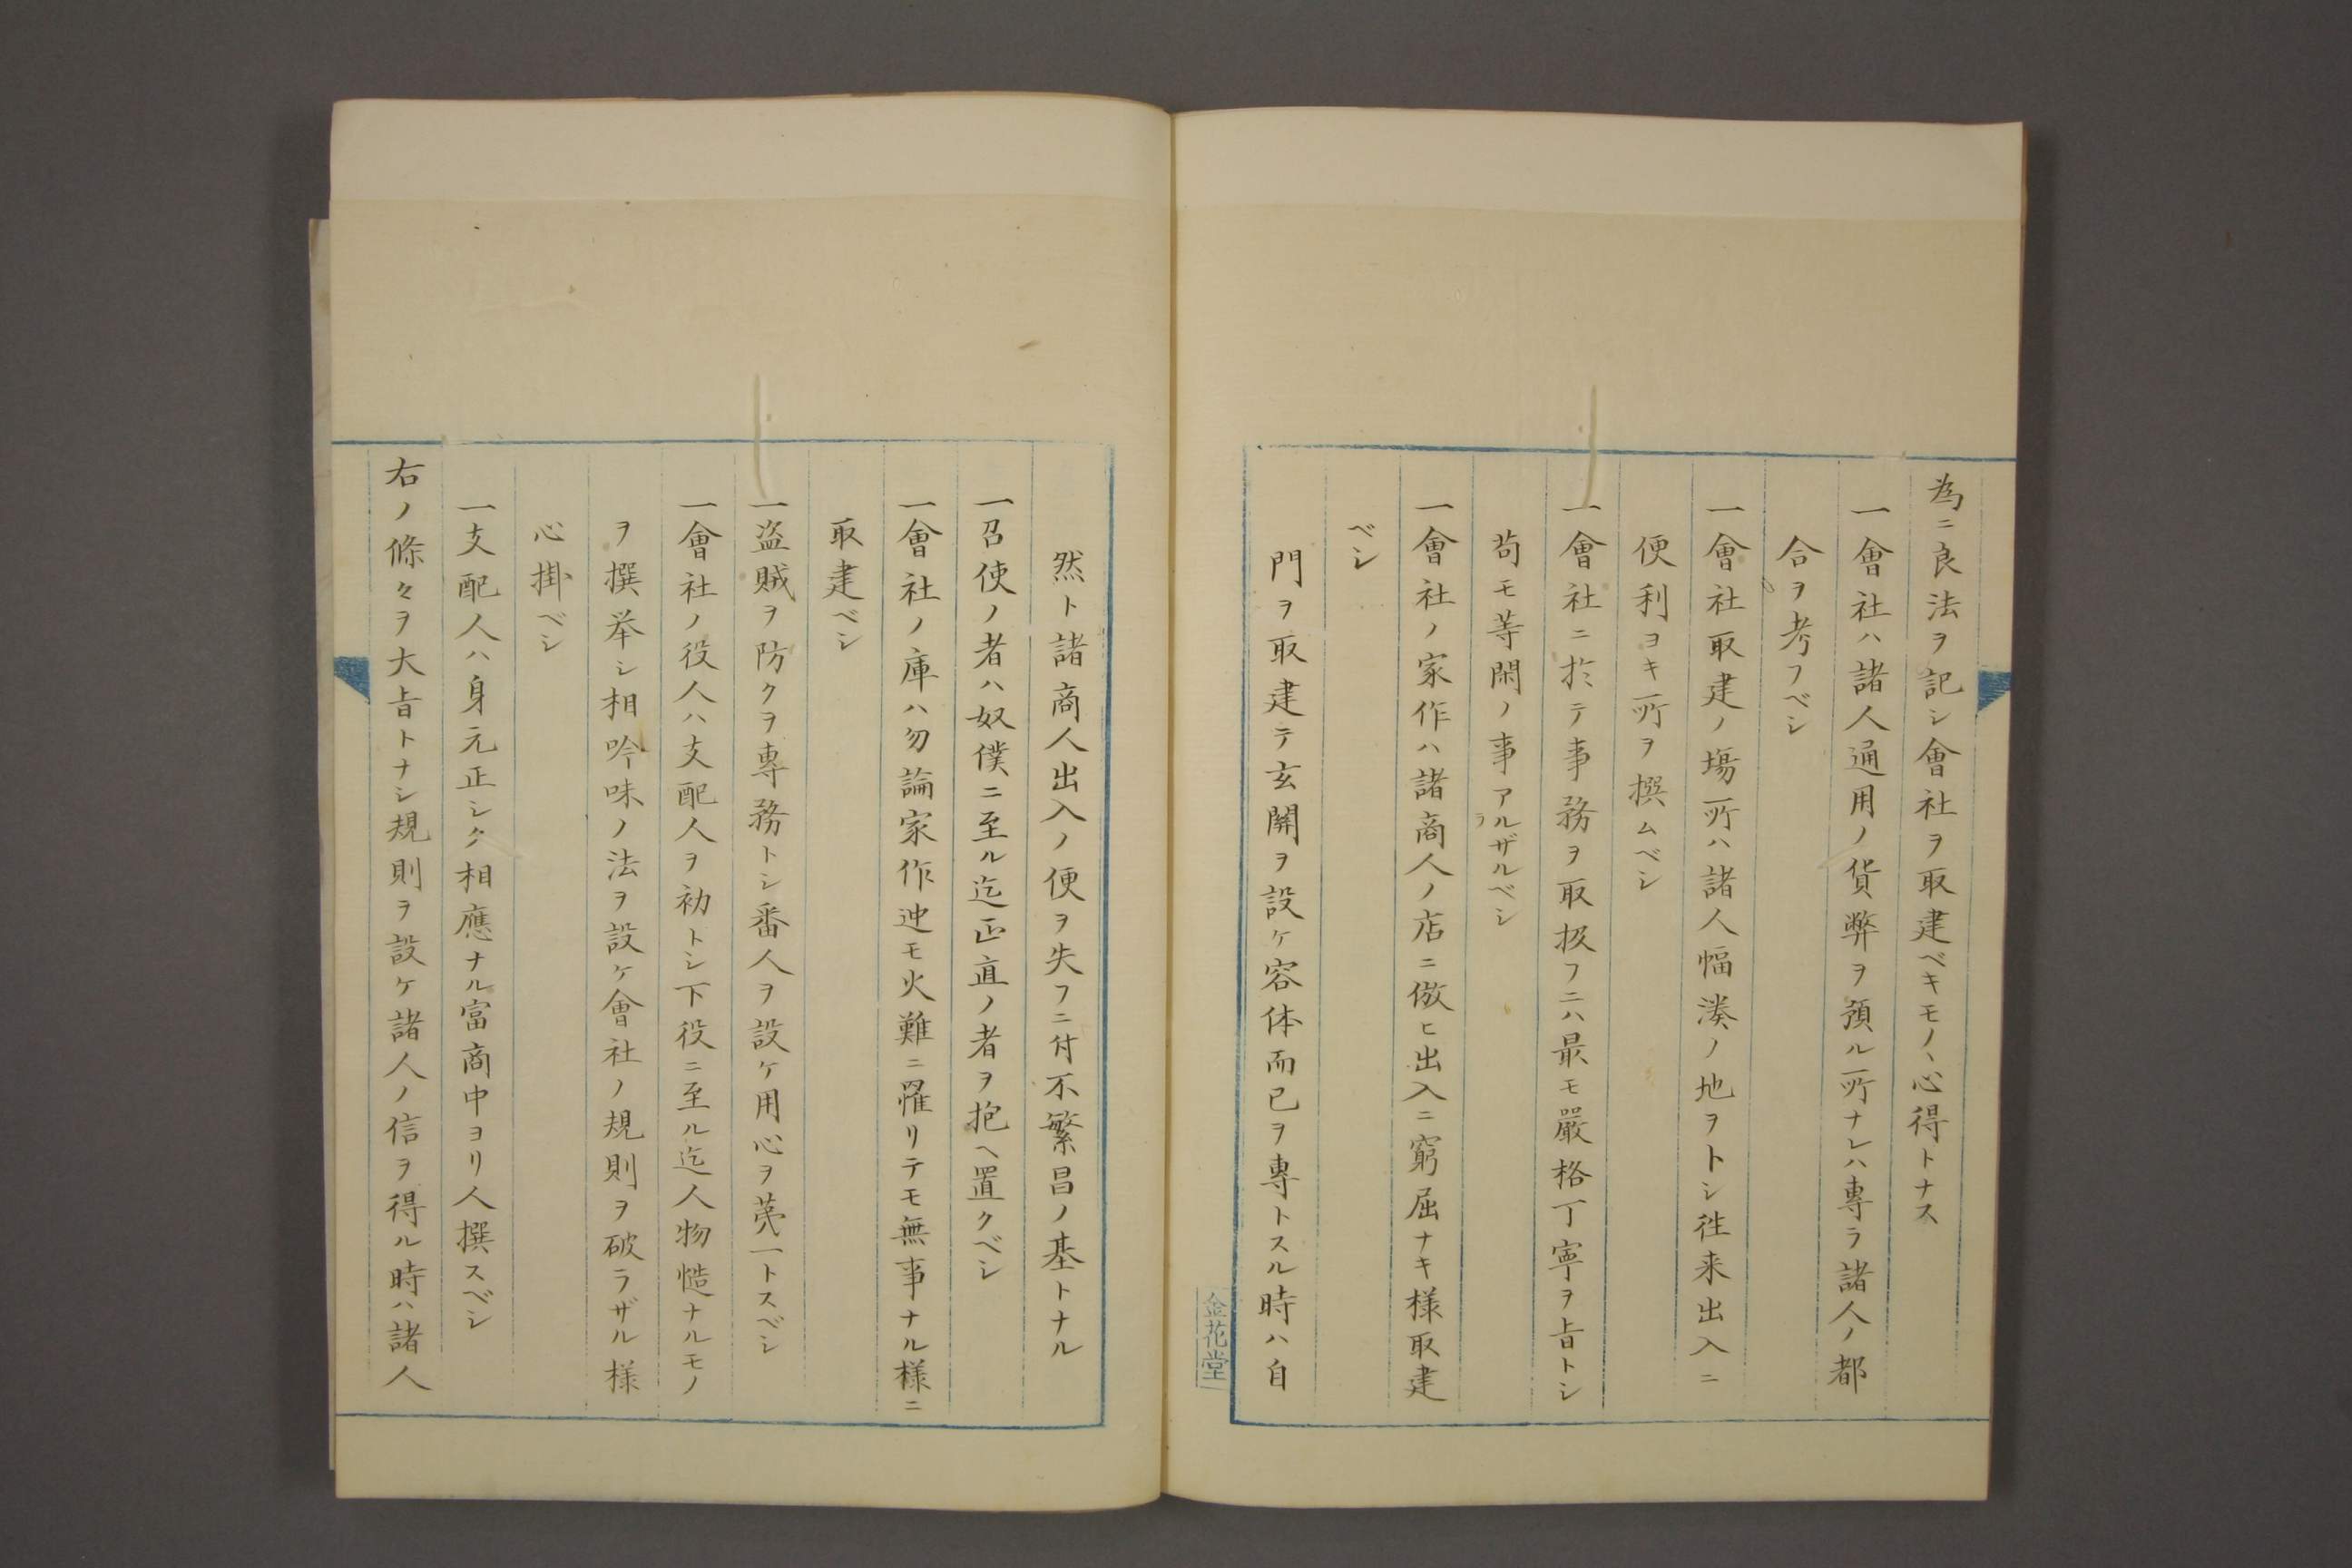 為ニ良法ヲ記シ會社ヲ取建ベキモノヽ心得トナス
一會社ハ諸人通用ノ貨弊ヲ預ル所ナレハ專ラ諸人ノ都
合ヲ考フベシ
一會社取建ノ塲所ハ諸人幅湊ノ地ヲトシ徃来出入ニ
便利ヨキ所ヲ撰ムベシ
一會社ニ於テ事務ヲ取扱フニハ最モ嚴格丁寧ヲ旨トシ
苟モ等閑ノ事アルザルベシ
ラ
一會社ノ家作ハ諸商人ノ店ニ倣ヒ出入ニ窮屈ナキ様取建
ベシ
門ヲ取建テ玄関ヲ設ケ容体而已ヲ專トスル時ハ自
金花堂
然ト諸商人出入ノ便ヲ失フニ付不繁昌ノ基トナル
一召使ノ者ハ奴僕ニ至ル迄正直ノ者ヲ抱ヘ置クベシ
一會社ノ庫ハ勿論家作迚モ火難ニ罹リテモ無事ナル様ニ
取建ベシ
一盗賊ヲ防クヲ專務トシ番人ヲ設ケ用心ヲ一トスベシ
一會社ノ役人ハ支配人ヲ初トシ下役ニ至ル迄人物慥ナルモノ
ヲ撰挙シ相吟味ノ法ヲ設ケ會社ノ規則ヲ破ラザル様
心掛ベシ
一支配人ハ身元正シク相應ナル富商中ヨリ人撰スベシ
右ノ條々ヲ大旨トナシ規則ヲ設ケ諸人ノ信ヲ得ル時ハ諸人